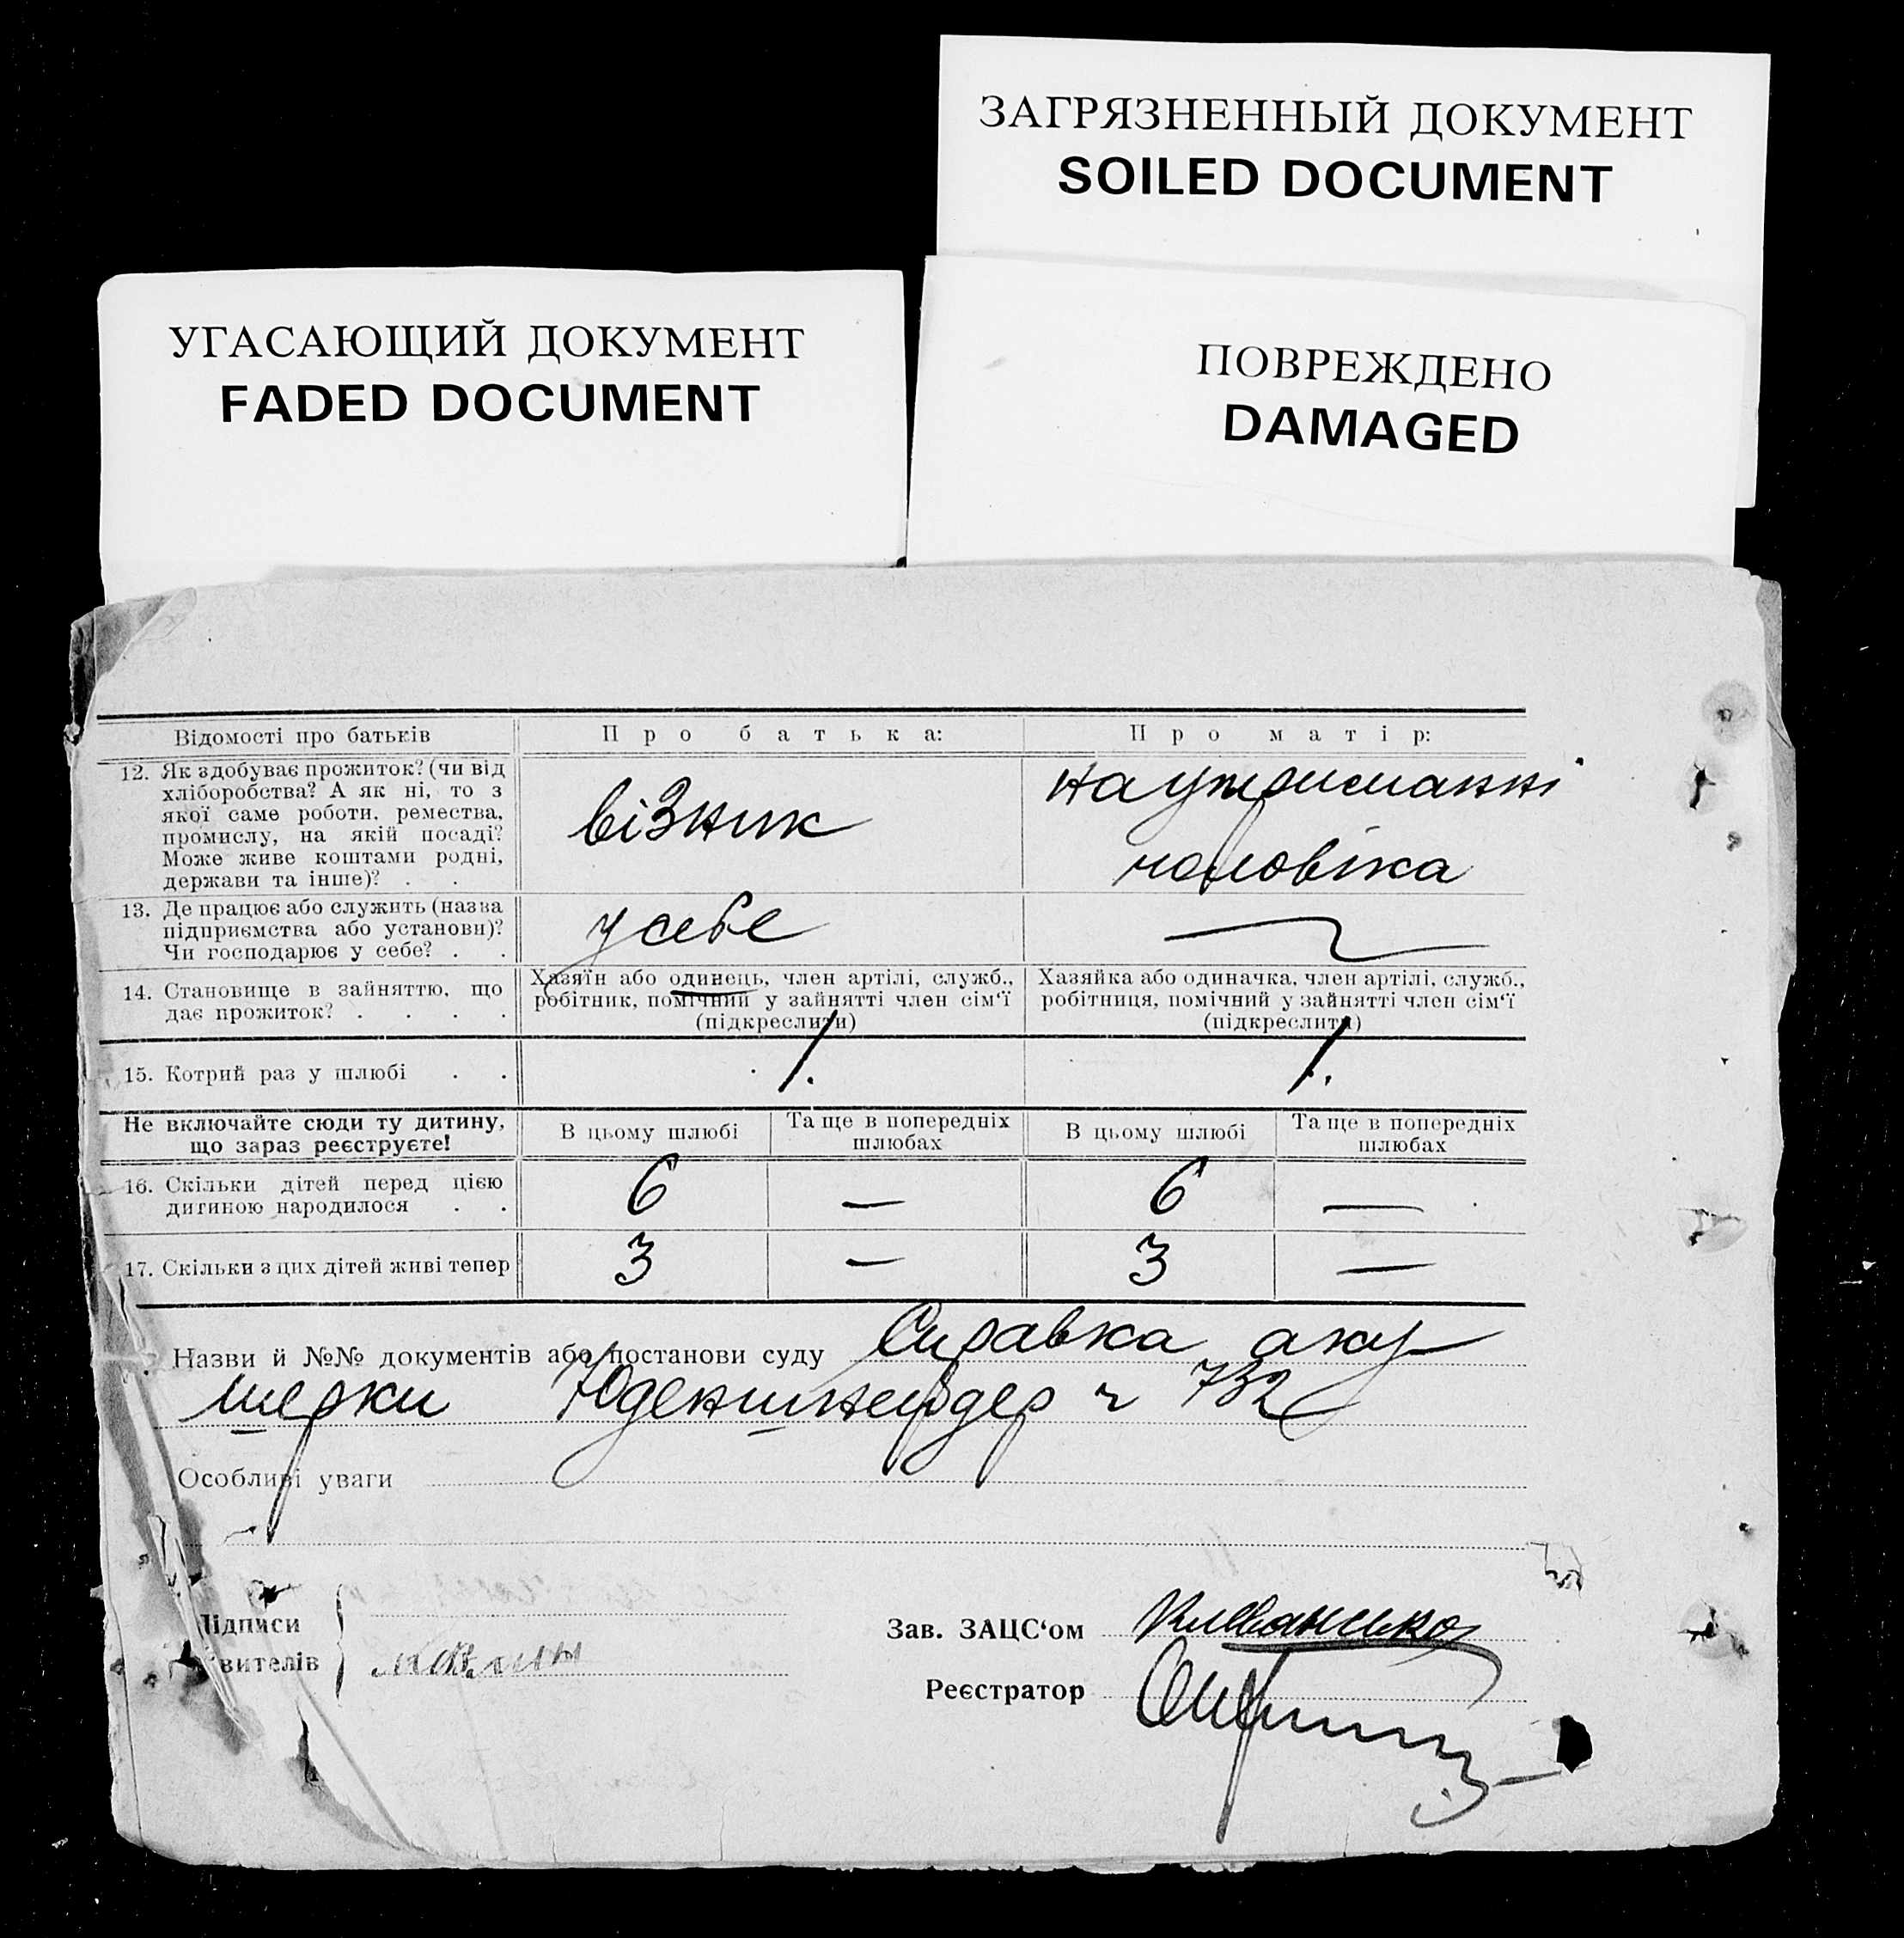 ЗАГРЯЗНЕННЫЙ ДОКУМЕНТ
SOILED DOCUMENT
УГАСАЮЩИЙ ДОКУМЕНТ
FADED DOCUMENT
ПОВРЕЖДЕНО
DAMAGED
Відомості про батьків
Про батька:
Про матір:
12. Як здобуває прожиток? (чи від
хліборобства? А як ні, то з
якої саме роботи, ремества,
промислу, на якій посаді?
Може живе коштами родні,
держави та інше)? . .
візник
на утриманні
чоловіка
13. Де працює або служить (назва
підприємства або установи)?
Чи господарює у себе? . .
у себе
—
14. Становище в зайняттю, що
дає прожиток? . . . .
Хазяїн або одинець, член артілі, служб.,
робітник, помічний у зайнятті член сім'ї
(підкреслити)
Хазяйка або одиначка, член артілі, служб.,
робітниця, помічний у зайнятті член сім'ї
(підкреслити)
15. Котрий раз у шлюбі . .
1.
1.
Не включайте сюди ту дитину,
що зараз реєструєте!
В цьому шлюбі
Та ще в попередніх
шлюбах
В цьому шлюбі
Та ще в попередніх
шлюбах
16. Скільки дітей перед цією
дитиною народилося . .
6
—
6
—
17. Скільки з цих дітей живі тепер
3
—
3
—
Назви й №№ документів або постанови суду Справка аку
шерки ч 732
Особливі уваги
Підписи
вителів
Зав. ЗАЦС'ом
Реєстратор